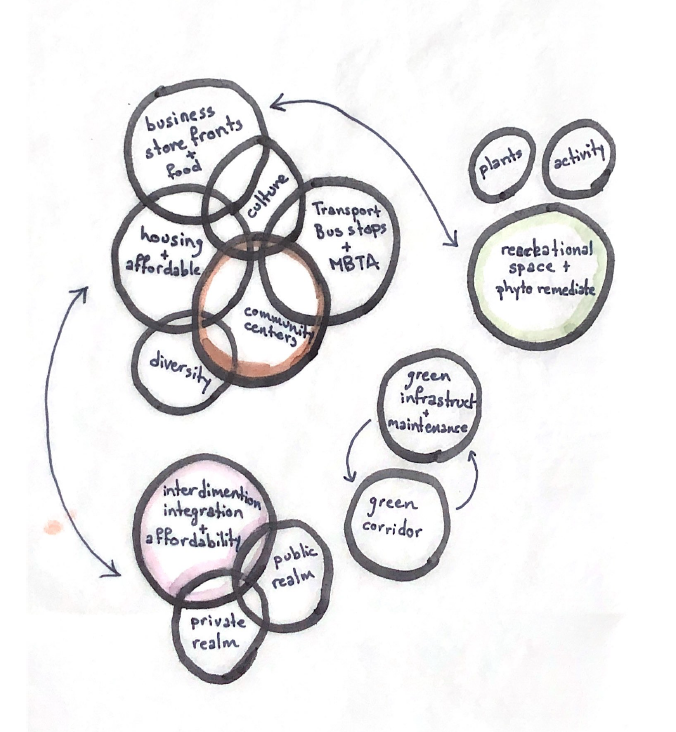 business
store fronts
+
food
culture
housing
+
affordable
Transport
Bus stops
+
MBTA
community
centers
diversity
plants
activity
space +
phyto remediate
green
infrastruct
+
maintenance
green
corridor
interdimention
integration
+
affordability
public
realm
private
realm